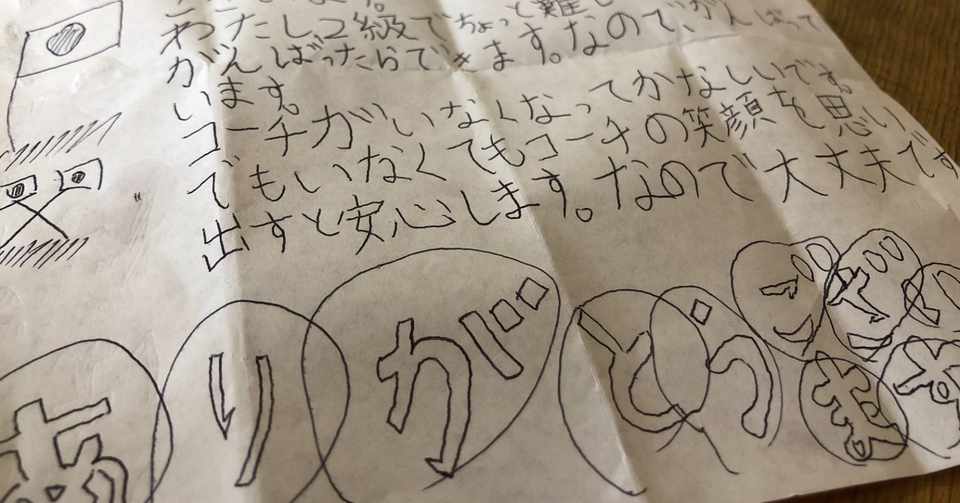 わたし2級でちょっと難し
がんばったらできます。なので、がんばって
います。
コーチがいなくなってかなしいです。
でもいなくてもコーチの笑顔を思い
出すと安心します。なので大丈夫です
ありがとうございます